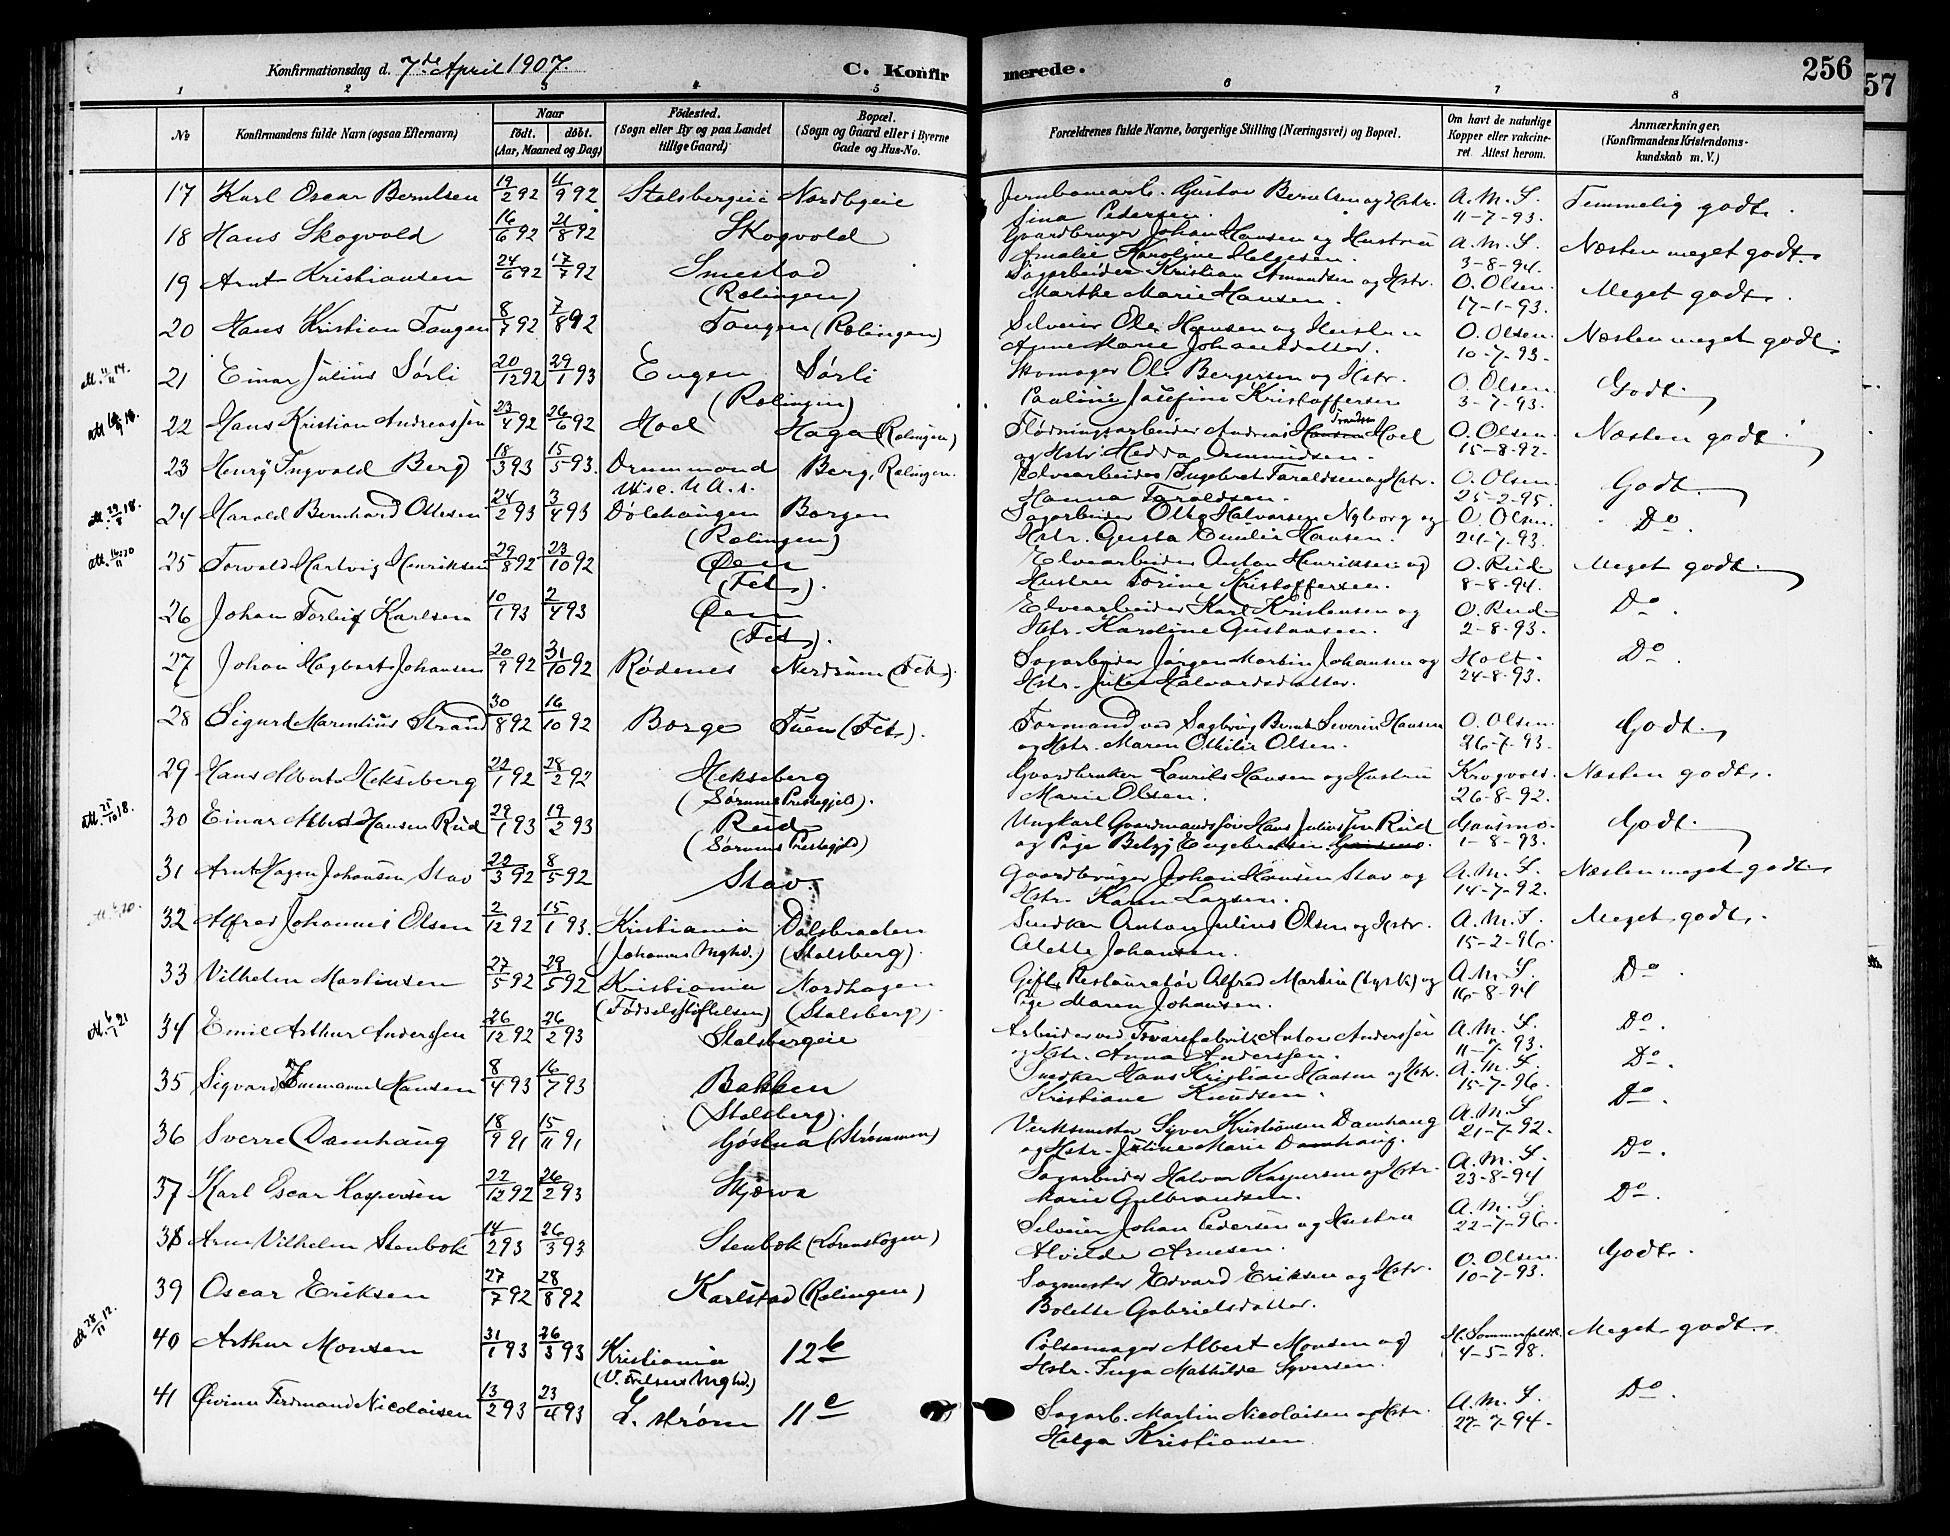 Konfirmationsdag d. 7de April 1907.
C. Konfir
merede.
256
57
1 2 3 4 5 6 7 8
No
Konfirmandens fulde Navn (ogsaa Efternavn)
Naar
født. døbt.
(Aar, Maaned og Dag)
Fødested.
(Sogn eller By og paa Landet
tillige Gaard)
Bopæl.
(Sogn og Gaard eller i Byerne
Gade og Hus-No.
Forældrenes fulde Navne, borgerlige Stilling (Næringsvei) og Bopæl.
Om havt de naturlige
Kopper eller vakcine-
ret. Attest herom.
Anmærkninger.
(Konfirmandens Kristendoms-
kundskab m. V.)
17 Karl Oscar Berntsen 19/2 92 11/9 92 Stalsbergeie Nordbyeie Jernbanearb. Gustav Berntsen og Hstr. A. M. S. Temmelig godt.
Lina Pedersen. 11-7-93.
18 Hans Skogvold 16/6 92 21/8 92 Skogvold Gaardbruger Johan Hansen og Hustru A. M. S. Næsten meget godt.
Amalie Karoline Helgesen. 3-8-94.
19 Arnt Kristiansen 24/6 92 17/7 92 Smestad Sagarbeider Kristian Amundsen og Hstr. O. Olsen. Meget godt.
(Rælingen) Marthe Marie Hansen. 17-1-93.
20 Hans Kristian Tangen 8/7 92 7/8 92 Tangen (Rælingen) Selveier Ole Hansen og Hustru O. Olsen. Næsten meget godt.
Anne Marie Johansdatter. 10-7-93.
att. 11/11 14. 21 Einar Julius Sørli 20/12 92 29/1 93 Engen Sørli Skomager Ole Bergersen og Hstr. O. Olsen. Godt.
(Rælingen) Pauline Josefine Kristoffersen 3-7-93.
22 Hans Kristian Andreassen 23/4 92 26/6 92 Hoel Haga (Rælingen) Flødningsarbeider Andreas Hansen Hoel O. Olsen. Næsten godt.
og Hstr. Hedda Amundsen. 15-8-92.
23 Henry Ingvald Berg 18/3 93 15/5 93. Drummond Berg, Rælingen. Elvearbeider Ingebret Taraldsen og Hstr. O. Olsen. Godt.
Wisc. U. A. S. Hanna Taraldsen. 25-2-95.
att. 29/8 18. 24 Harald Bernhard Ottesen 24/2 93 3/4 93 Dølehaugen Borgen Sagarbeider Otto Halvorsen Nyborg og O. Olsen. Do.
(Rælingen) Hstr. Gusta Emilie Hansen. 24-7-93.
25 Torvald Hartvig Henriksen 29/8 92 23/10 92 Øen Elvearbeider Anton Henriksen og O. Rud Meget godt.
(Fet). Hustru Torine Kristoffersen. 8-8-94.
26 Johan Torleif Karlsen 10/1 93 2/4 93 Øen Elvearbeider Karl Kristensen og O. Rud Do.
(Fet). Hstr. Karoline Gustavsen. 2-8-93.
27 Johan Hagbart Johansen 20/9 92 31/10 92 Rødenes Nerdrum (Fet). Sagarbeider Jørgen Martin Johansen og Holt. Do.
Hstr. Julie Halvardsdatter. 24-8-93.
28 Sigurd Marentius Strand 30/8 92 16/10 92 Borge Tuen (Fet). Formand ved Sagbrug Bernt Severin Hansen O. Olsen. Godt.
og Hstr. Maren Othilie Olsen. 26-7-93.
29 Hans Albert Hekseberg 22/1 92 28/2 92 Hekseberg Gaardbruker Laurits Hansen og Hustru Krogvold. Næsten godt.
(Sørums Prestegjeld). Marie Olsen. 26-8-92.
att. 25/10 18. 30 Einar Albert Hansen Rud 29/1 93 19/2 93 Rud Ungkarl Gaardmandssøn Hans Julius Rud Gausmo. Godt.
(Sørums Prestegjeld) og Pige Betzy Engebretsen. 1-8-93.
31 Arnt Hagen Johansen Stav 22/3 92 8/5 92 Stav. Gaardbruger Johan Hansen Stav og A. M. S. Næsten meget godt.
Hstr. Karen Larsen. 14-7-92.
32 Alfred Johannes Olsen 2/12 92 15/1 93. Kristiania Dalsbraaten Snedker Anton Julius Olsen og Hstr. A. M. S. Meget godt.
(Johannes Mghd.) (Stalsberg). Alette Johansen. 15-2-96.
33 Vilhelm Martinsen 27/5 92 29/5 92 Kristiania Nordhagen Gift Restauratør Alfred Martin (tysk) og A. M. S. Do.
(Fødselsstiftelsen) (Stalsberg). Pige Maren Johansen. 16-8-94
34 Emil Arthur Anderssen 26/12 92 26/2 93 Stalsbergeie Arbeider ved Tovarefabrik Anton Anderssen A. M. S. Do.
og Hstr. Anna Anderssen. 11-7-93.
35 Sigvard Emmanuel Hansen 8/4 93 16/7 93 Bakken Snedker Hans Kristian Hansen og Hstr. A. M. S. Do.
(Stalsberg). Kristiane Knudsen. 15-7-96.
36 Sverre Damhaug 18/9 91 15/11 91 (Strømmen) Verksmester Syver Kristiansen Damhaug A. M. S. Do.
og Hstr. Juline Marie Damhaug. 21-7-92.
37 Karl Oscar Kaspersen 22/12 92 26/2 93 Skjærva Sagarbeider Halvor Kaspersen og Hstr. A. M. S. Do.
Marie Gulbrandsen. 23-8-94
38 Arne Vilhelm Stenbok 14/2 93 26/3 93 Stenbok (Lørenskogen) Selveier Johan Pedersen og Hustru A. M. S. Do.
Alvilde Arnesen. 22-7-96.
39 Oscar Eriksen 27/7 92 28/8 92 Karlstad (Rælingen) Sagmester Edvard Eriksen og Hstr. O. Olsen. Godt.
Bolette Gabrielsdatter. 10-7-93.
att. 28/11 12. 40 Arthur Monsen 31/1 93 26/3 93 Kristiania 12b Pølsemager Albert Monsen og H. Sommerfeldt. Meget godt.
Hstr. Inga Mathilde Syversen. 4-5-98.
41 Øivinn Ferdinand Nicolaisen 13/2 93 23/4 93 L. strøm 11c Sagarb. Martin Nicolaisen og Hstr. A. M. S. Do.
Helga Kristiansen. 27-7-94.